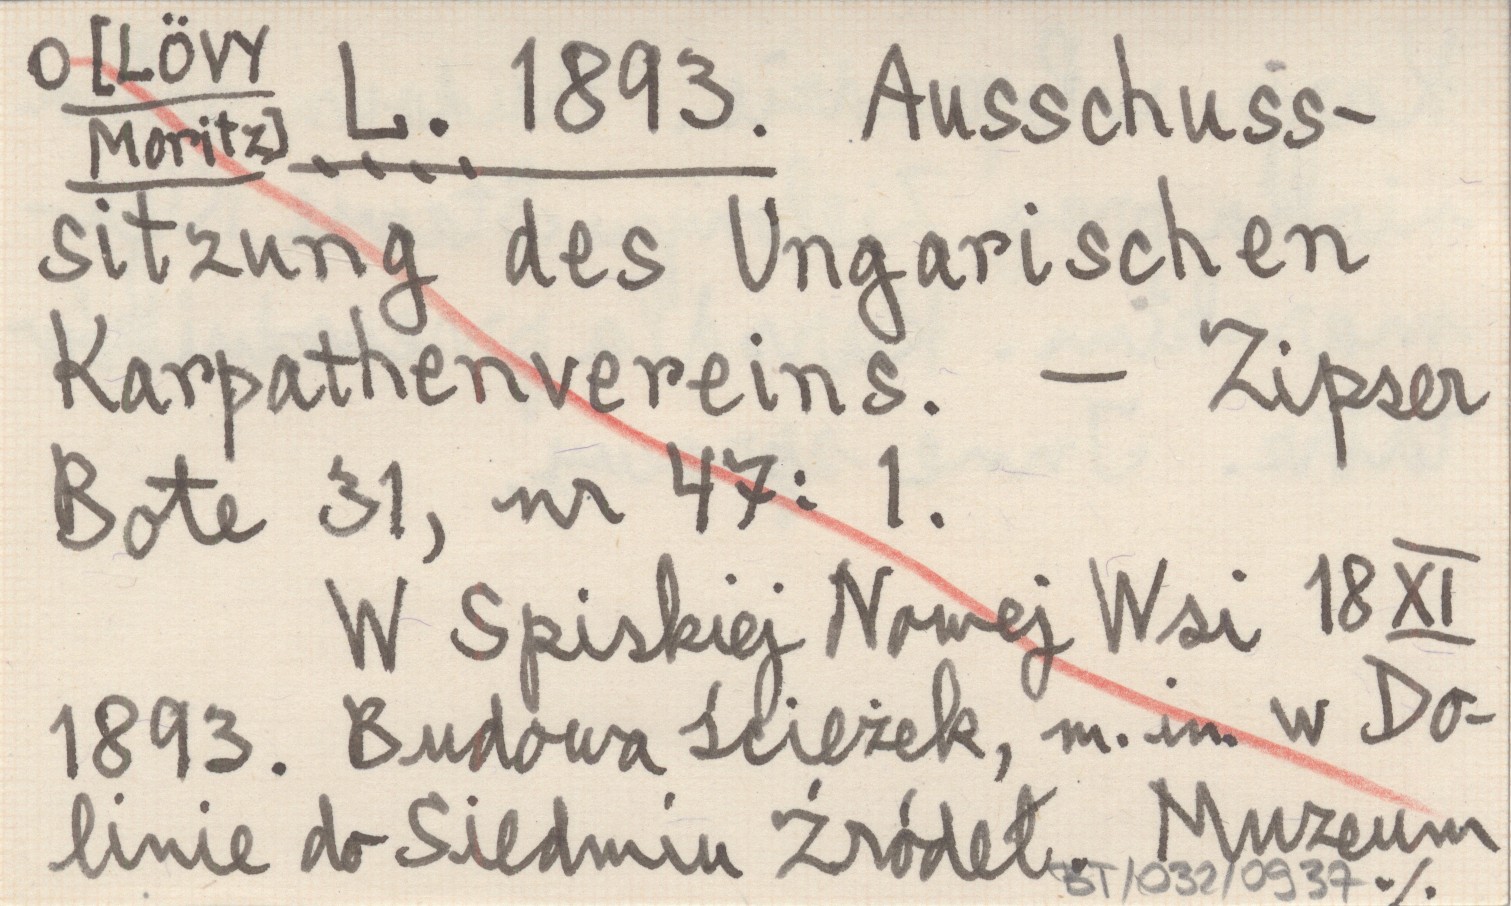 O [LÖVY
Moritz] L. 1893. Ausschuss-
sitzung des Ungarischen
Karpathenvereins. — Zipser
Bote 31, nr 47: 1.
W Spiskiej Nowej Wsi 18 XI
1893. Budowa ścieżek, m. in. w Do-
linie do Siedmiu Źródeł. Muzeum
BT/032/0937 ./.